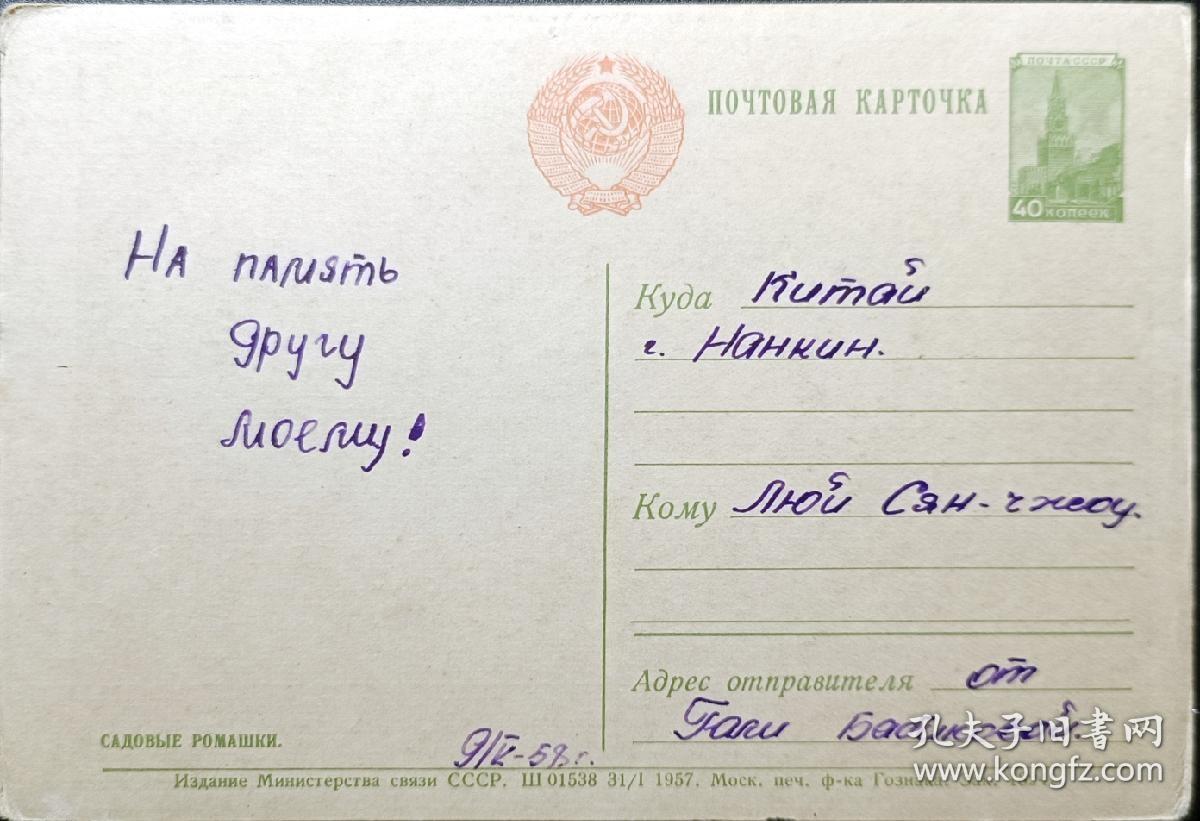 ПОЧТА СССР
ПОЧТОВАЯ КАРТОЧКА
40 КОПЕЕК
На память
другу
моему!
Куда Китай
г. Нанкин.
Кому Люй Сян-чжоу.
Адрес отправителя от
Гали
САДОВЫЕ РОМАШКИ.
孔夫子旧书网
Издание Министерства связи СССР. Ш 01538 31/I 1957. Моск. печ. ф-ка Гознака. Зак.
www.kongfz.com